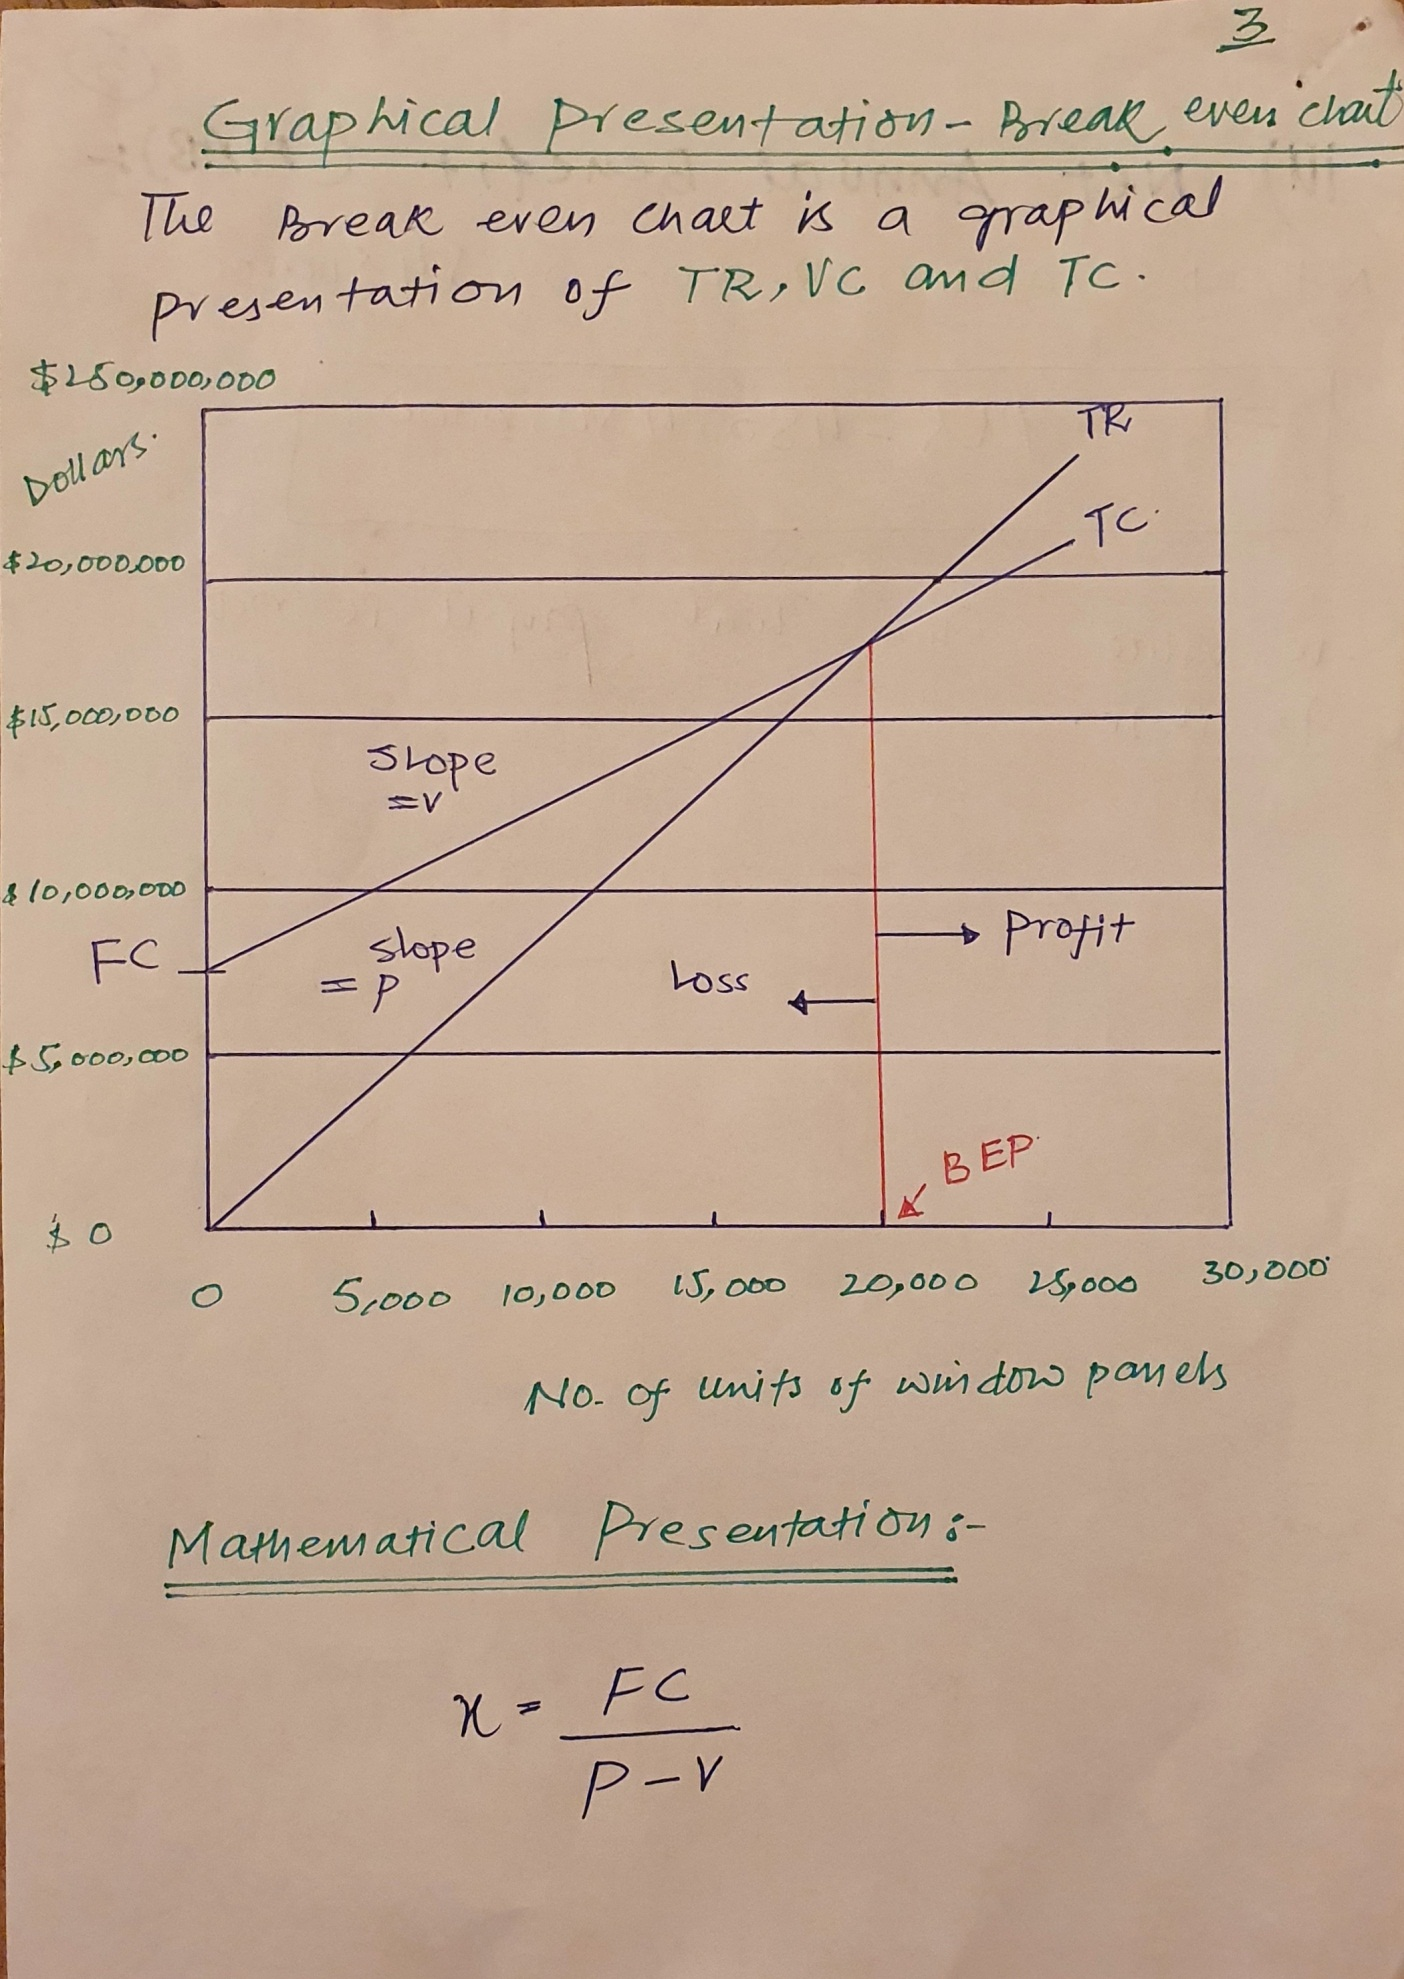 3
Graphical Presentation - Break even chart
The Break even chart is a graphical
presentation of TR, VC and TC.
$250,000,000
Dollars.
TR
TC
$20,000,000
$15,000,000
Slope
=v
$10,000,000
FC
slope
= p
Loss
Profit
$5,000,000
BEP
$0
0 5,000 10,000 15,000 20,000 25,000 30,000
No. of units of window panels
Mathematical Presentation:-
x = FC
P-V